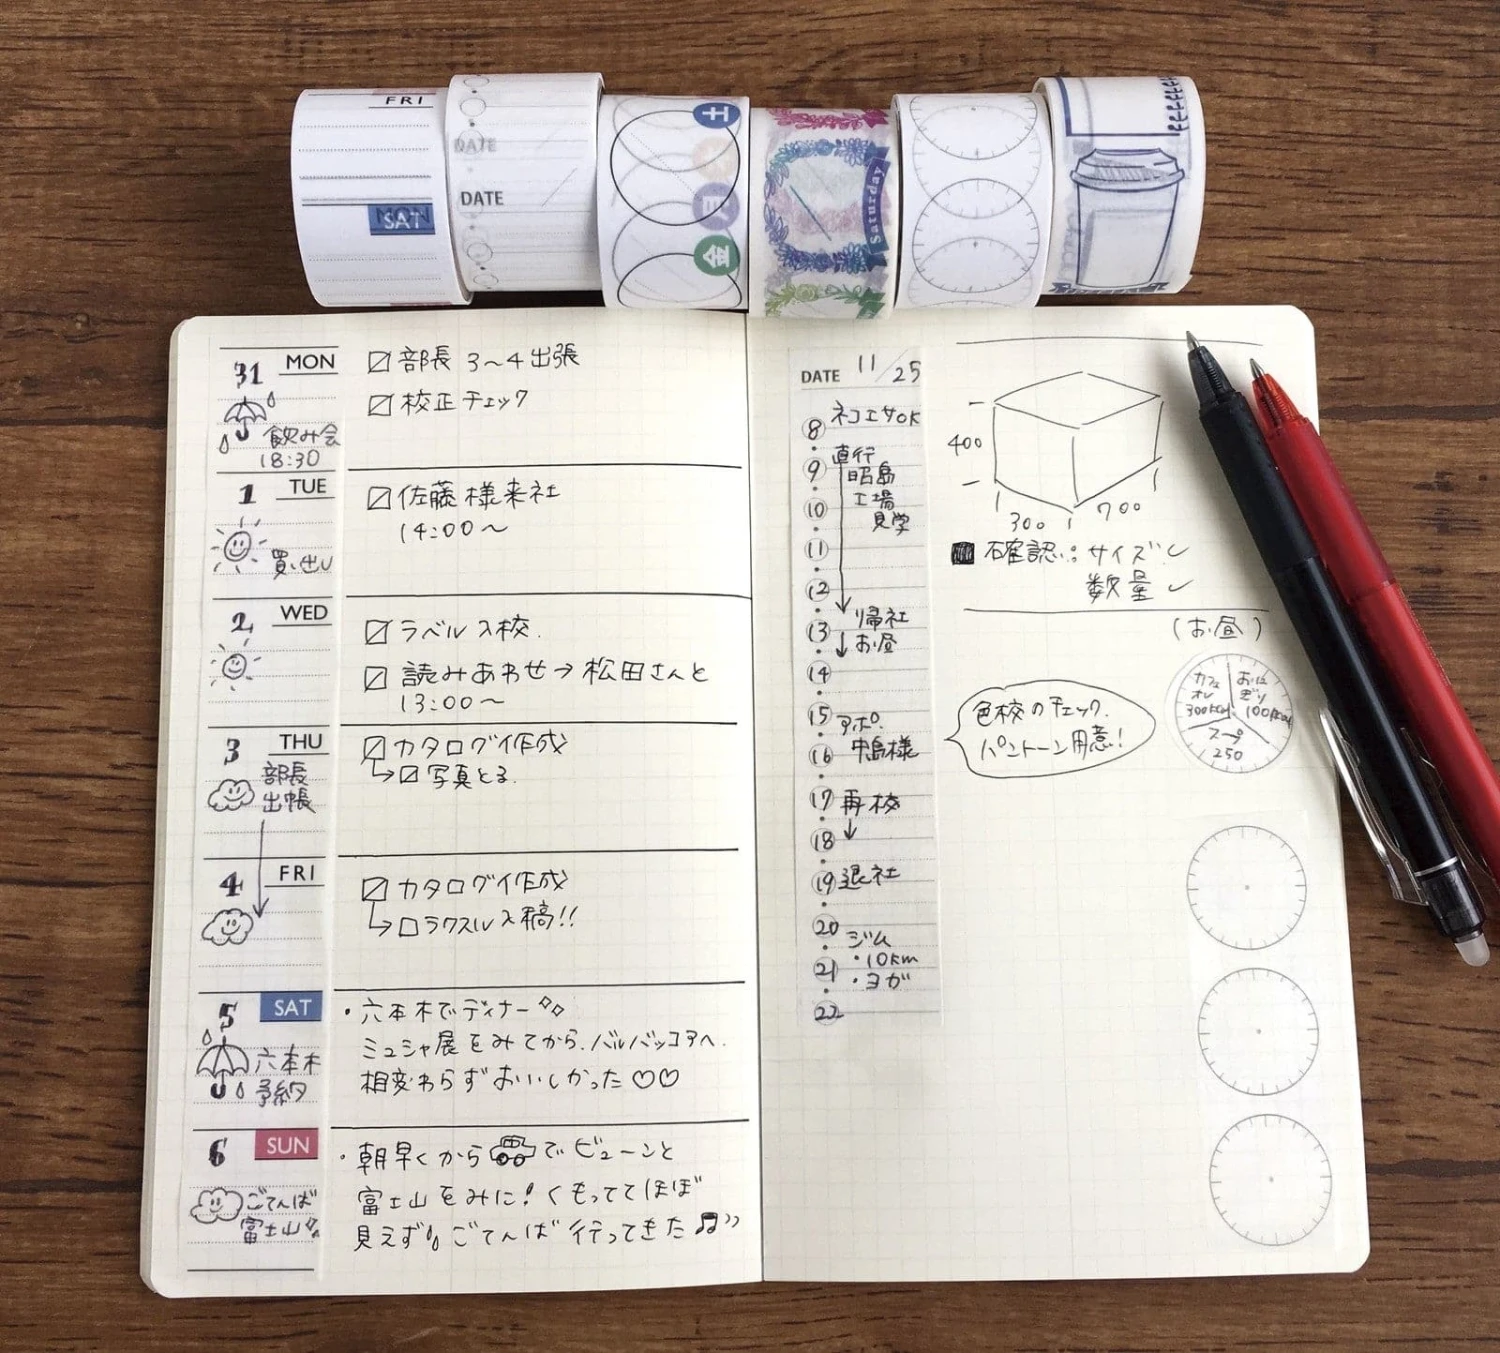 FRI
SAT
DATE
DATE
土
月
金
Saturday
31 MON
飲み会
18:30
☑ 部長 3～4出張
☑ 校正チェック
1 TUE
買い出し
☑ 佐藤様来社
14:00～
2 WED
☑ ラベル入校.
☑ 読みあわせ→松田さんと
13:00～
3 THU
部長
出帳
☑ カタログ作成
↳☑ 写真とる.
4 FRI
☑ カタログ作成
↳☐ラクスル入稿!!
5 SAT
六本木
予約
・六本木でディナー
ミュシャ展をみてから.バルバッコアへ.
相変わらずおいしかった♡♡
6 SUN
ごてんば
富士山
・朝早くから🚗でビューンと
富士山をみに!くもっててほぼ
見えず ごてんば行ってきた♬
DATE 11/25
8 ネコエサOK
9 直行
昭島
10 工場
見学
11
12
帰社
13 ↓お昼
14
15 アポ.
16 中島様
17 再校
18 ↓
19 退社
20 ジム
・10km
21 ・ヨガ
22
400
300
700
■ 確認: サイズ✓
数量✓
(お昼)
カフェ
オレ
300kcal
おにぎり
100kcal
スープ
250
色校のチェック.
パントーン用意!